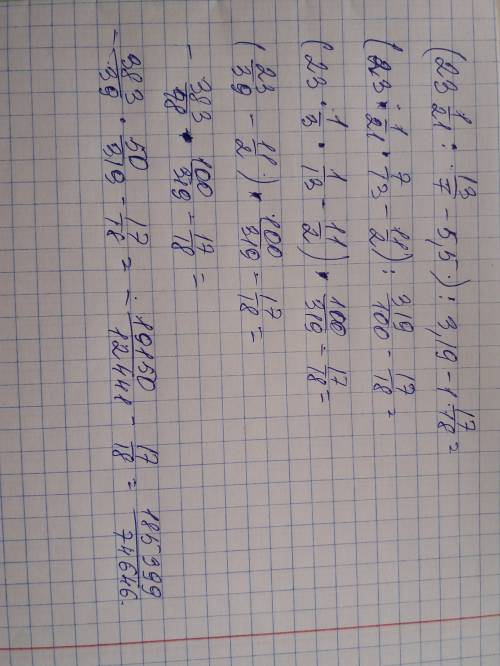 (23 1/21 : 13/7 - 5,5) : 3,19 - 1 · 17/18 =
(23 · 1/21 · 7/13 - 11/2) : 319/100 - 17/18 =
(23 · 1/3 · 1/13 - 11/2) · 100/319 - 17/18 =
(23/39 - 11/2) · 100/319 - 17/18 =
- 383/78 · 100/319 - 17/18 =
- 383/39 · 50/319 - 17/18 = - 19150/12441 - 17/18 = 185399/74646